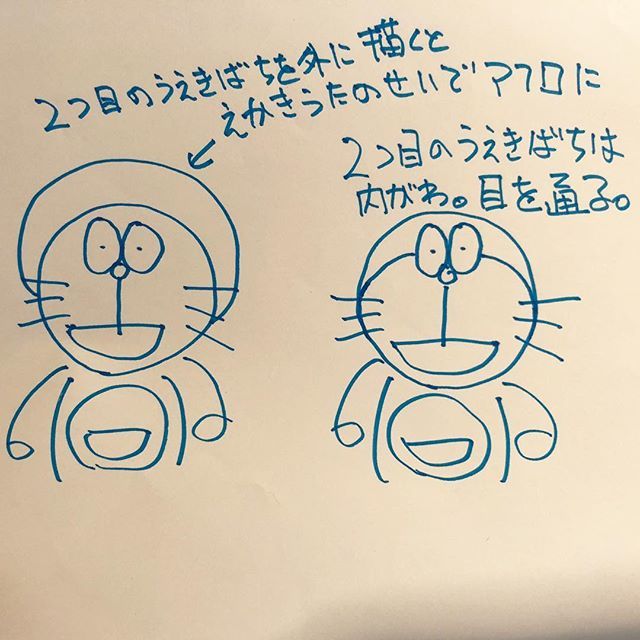 2つ目のうえきばちを外に描くと
えかきうたのせいでアフロに
2つ目のうえきばちは
内がわ。目を通る。